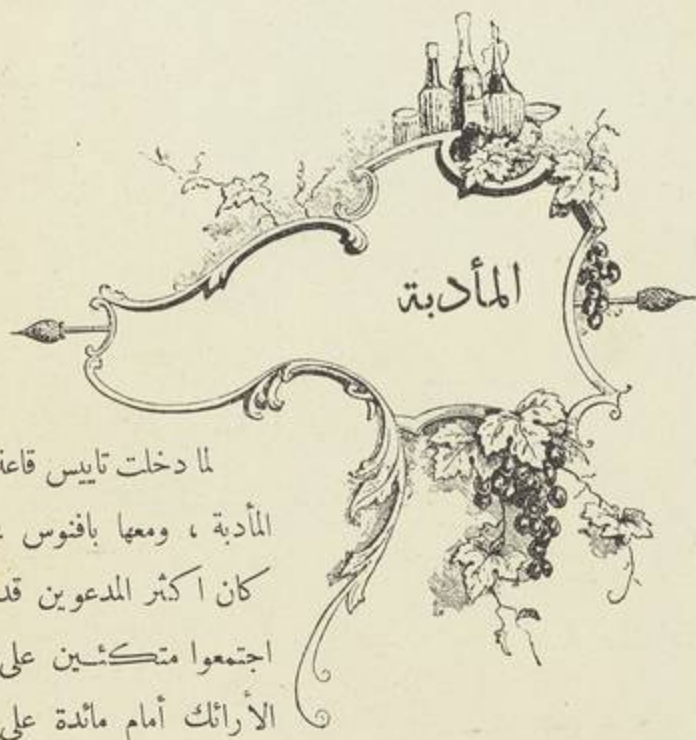 المأدبة
لما دخلت تاييس قاعة
المأدبة ، ومعها بافنوس ،
كان اكثر المدعوين قد
اجتمعوا متكئين على
الأرائك أمام مائدة على